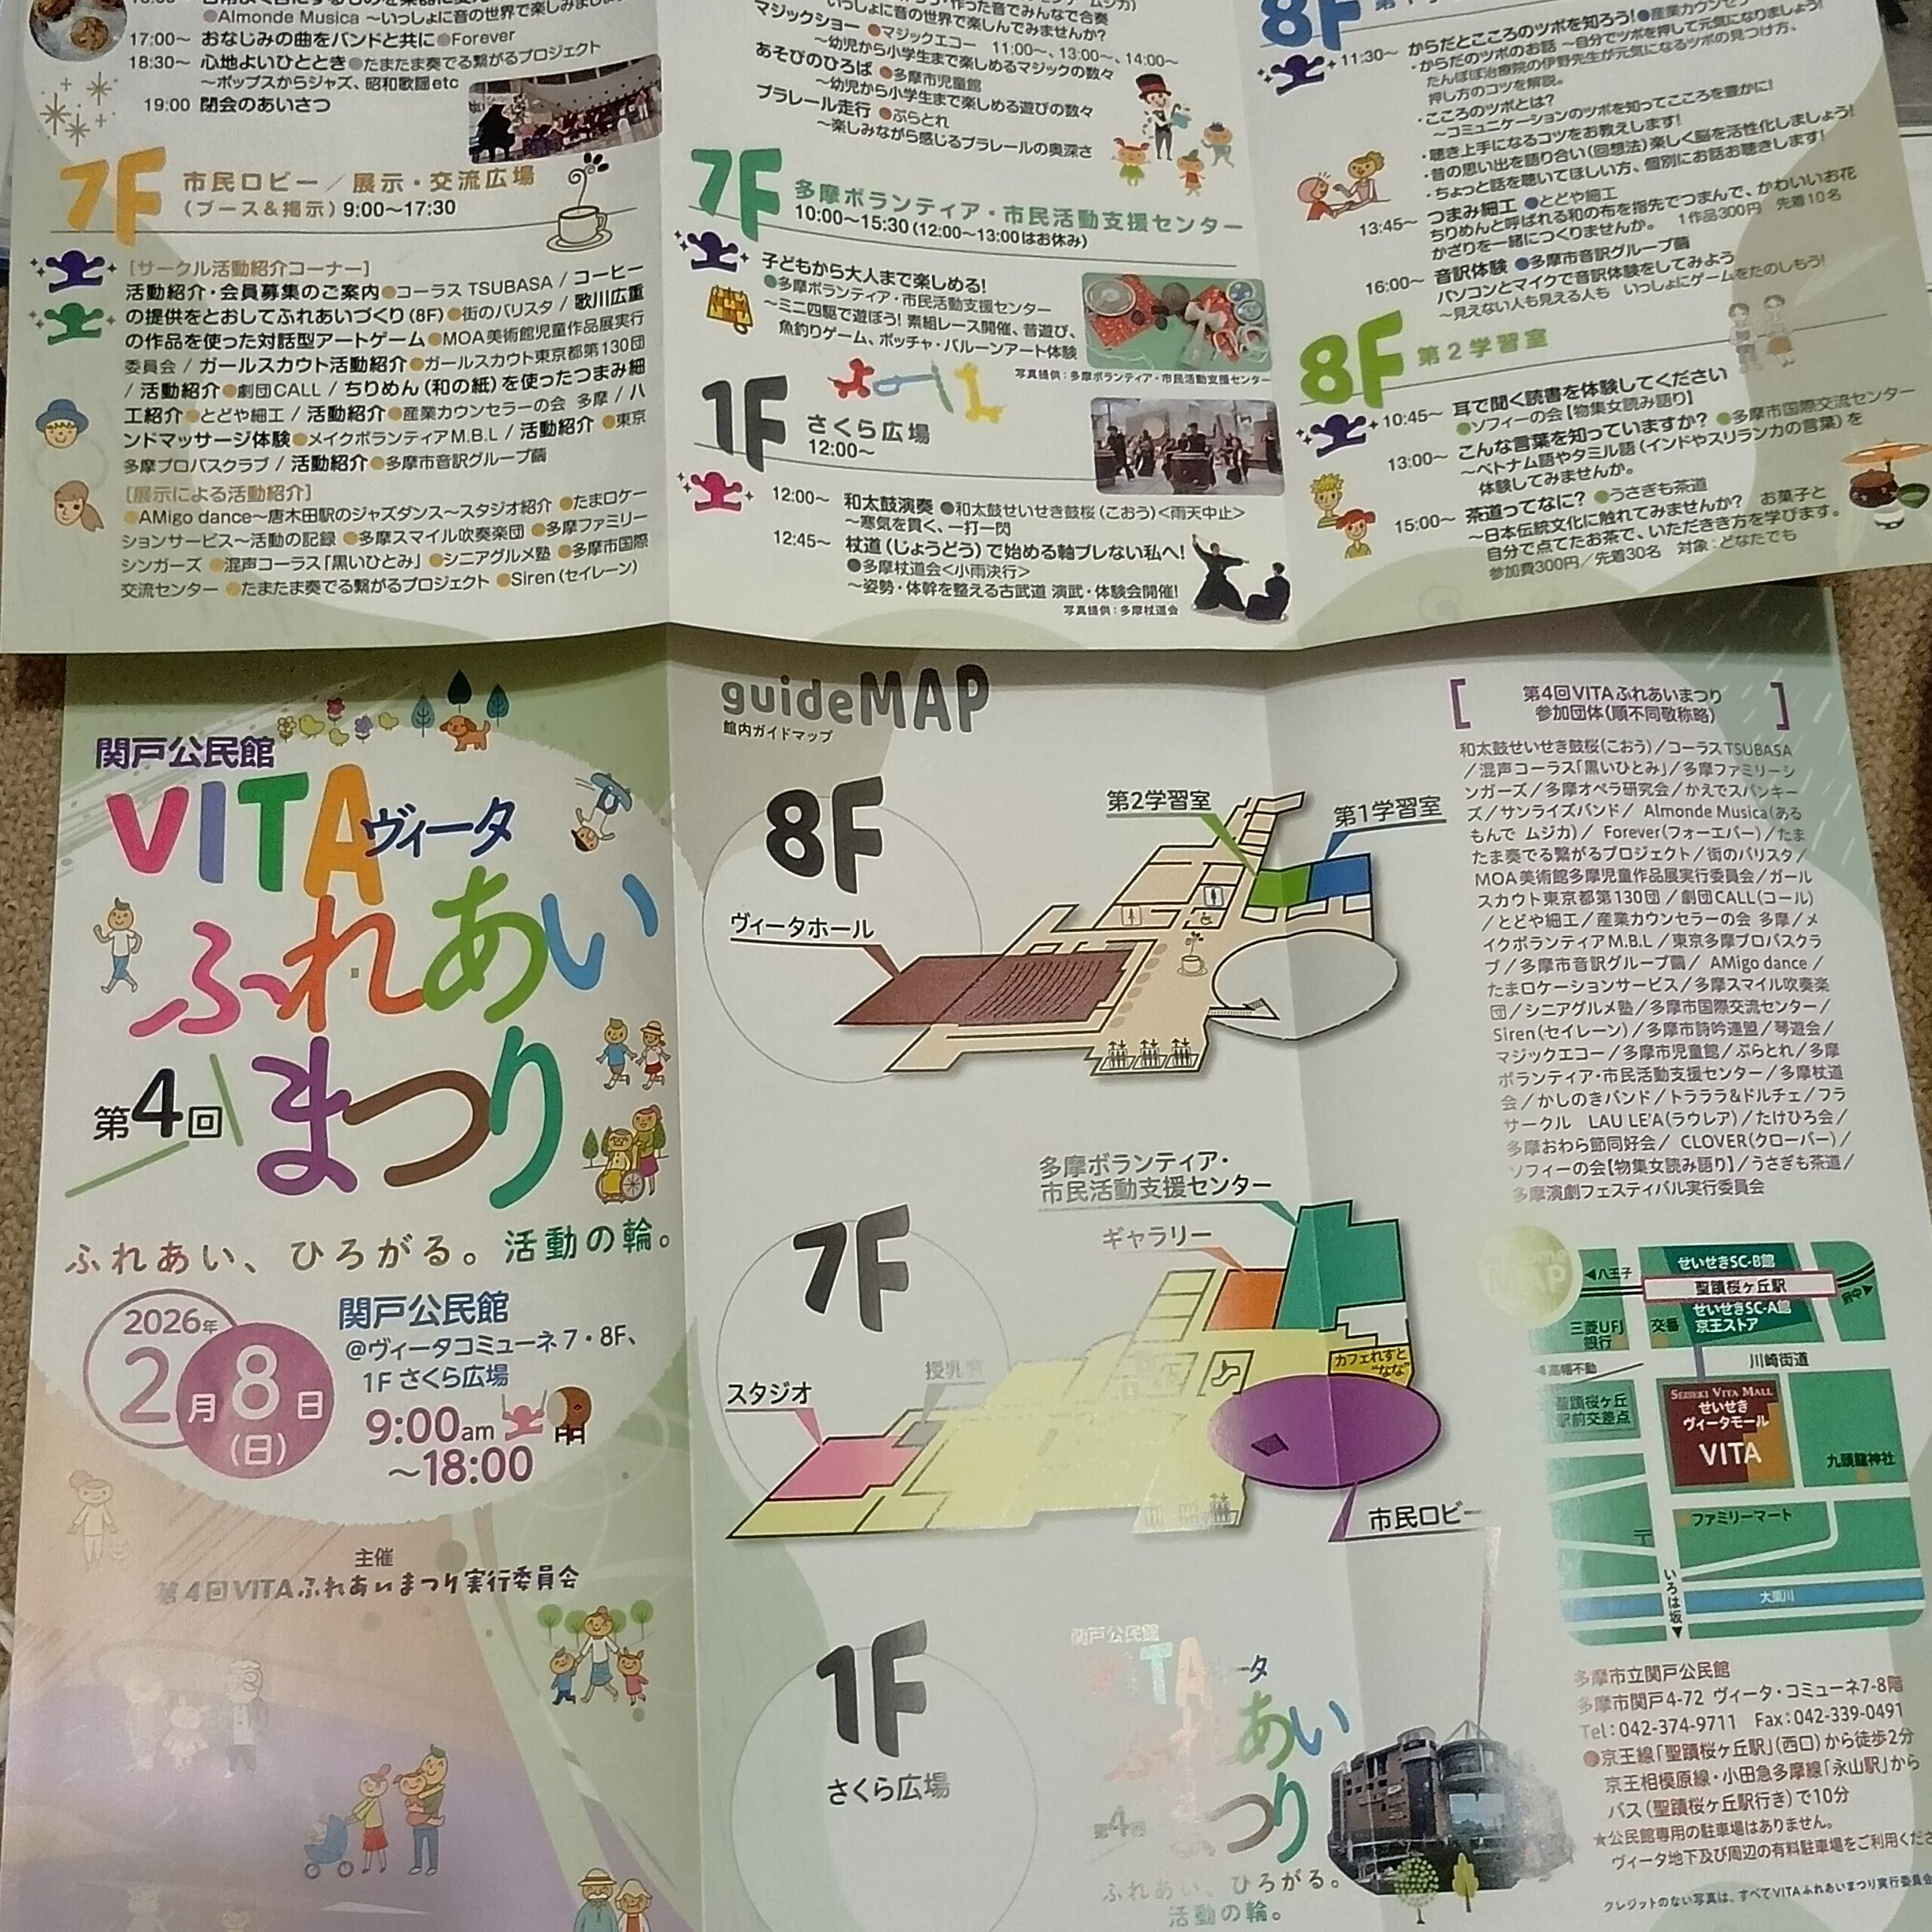 ●Almonde Musica ～いっしょに音の世界で楽しみまし
17:00～ おなじみの曲をバンドと共に●Forever
18:30～ 心地よいひととき●たまたま奏でる繋がるプロジェクト
～ポップスからジャズ、昭和歌謡etc
19:00 閉会のあいさつ
7F 市民ロビー／展示・交流広場
(ブース&掲示) 9:00～17:30
[サークル活動紹介コーナー]
活動紹介・会員募集のご案内●コーラス TSUBASA / コーヒー
の提供をとおしてふれあいづくり(8F)●街のバリスタ / 歌川広重
の作品を使った対話型アートゲーム●MOA美術館児童作品展実行
委員会 / ガールスカウト活動紹介●ガールスカウト東京都第130団
/ 活動紹介●劇団CALL / ちりめん(和の紙)を使ったつまみ細
工紹介●とどや細工 / 活動紹介●産業カウンセラーの会 多摩 / ハ
ンドマッサージ体験●メイクボランティアM.B.L / 活動紹介 ●東京
多摩プロバスクラブ / 活動紹介●多摩市音訳グループ繭
[展示による活動紹介]
●AMigo dance～唐木田駅のジャズダンス～スタジオ紹介 ●たまロケー
ションサービス～活動の記録 ●多摩スマイル吹奏楽団 ●多摩ファミリー
シンガーズ ●混声コーラス「黒いひとみ」●シニアグルメ塾 ●多摩市国際
交流センター ●たまたま奏でる繋がるプロジェクト ●Siren(セイレーン)
いっしょに音の世界で楽しんでみませんか?
マジックショー ●マジックエコー 11:00～、13:00～、14:00～
～幼児から小学生まで楽しめるマジックの数々
あそびのひろば ●多摩市児童館
～幼児から小学生まで楽しめる遊びの数々
プラレール走行 ●ぷらとれ
～楽しみながら感じるプラレールの奥深さ
7F 多摩ボランティア・市民活動支援センター
10:00～15:30(12:00～13:00はお休み)
子どもから大人まで楽しめる!
●多摩ボランティア・市民活動支援センター
～ミニ四駆で遊ぼう! 素組レース開催、昔遊び、
魚釣りゲーム、ボッチャ・バルーンアート体験
写真提供:多摩ボランティア・市民活動支援センター
1F さくら広場
12:00～
12:00～ 和太鼓演奏 ●和太鼓せいせき鼓桜(こおう)<雨天中止>
～寒気を貫く、一打一閃
12:45～ 杖道(じょうどう)で始める軸ブレない私へ!
●多摩杖道会<小雨決行>
～姿勢・体幹を整える古武道 演武・体験会開催!
写真提供:多摩杖道会
8F
11:30～ からだとこころのツボを知ろう!●産業カウンセ
・からだのツボのお話 ～自分でツボを押して元気になりましょう!
たんぽぽ治療院の伊野先生が元気になるツボの見つけ方、
押し方のコツを解説。
・こころのツボとは?
～コミュニケーションのツボを知ってこころを豊かに!
・聴き上手になるコツをお教えします!
・昔の思い出を語り合い(回想法)楽しく脳を活性化しましょう!
・ちょっと話を聴いてほしい方、個別にお話お聴きします!
13:45～ つまみ細工 ●とどや細工
ちりめんと呼ばれる和の布を指先でつまんで、かわいいお花
かざりを一緒につくりませんか。 1作品300円 先着10名
16:00～ 音訳体験 ●多摩市音訳グループ繭
パソコンとマイクで音訳体験をしてみよう
～見えない人も見える人も いっしょにゲームをたのしもう!
8F 第2学習室
10:45～ 耳で聞く読書を体験してください
●ソフィーの会【物集女読み語り】
13:00～ こんな言葉を知っていますか? ●多摩市国際交流センター
～ベトナム語やタミル語(インドやスリランカの言葉)を
体験してみませんか。
15:00～ 茶道ってなに? ●うさぎも茶道
～日本伝統文化に触れてみませんか? お菓子と
自分で点てたお茶で、いただき方を学びます。
参加費300円/先着30名 対象:どなたでも
関戸公民館
VITA ヴィータ
ふれあい
第4回 まつり
ふれあい、ひろがる。活動の輪。
2026年
2月8日
(日)
関戸公民館
@ヴィータコミューネ7・8F、
1F さくら広場
9:00am
～18:00
主催
第4回VITAふれあいまつり実行委員会
guideMAP
館内ガイドマップ
8F
第2学習室
第1学習室
ヴィータホール
7F
多摩ボランティア・
市民活動支援センター
ギャラリー
授乳室
スタジオ
カフェれすと
"なな"
市民ロビー
1F
さくら広場
関戸公民館
VITA
ータ
あい
第4回
つり
ふれあい、ひろがる。
活動の輪。
第4回VITAふれあいまつり
参加団体(順不同敬称略)
和太鼓せいせき鼓桜(こおう)/コーラスTSUBASA
/混声コーラス「黒いひとみ」/多摩ファミリーシ
ンガーズ/多摩オペラ研究会/かえでスパンキー
ズ/サンライズバンド/ Almonde Musica(ある
もんで ムジカ)/ Forever(フォーエバー)/たま
たま奏でる繋がるプロジェクト/街のバリスタ/
MOA美術館多摩児童作品展実行委員会/ガール
スカウト東京都第130団/劇団CALL(コール)
/とどや細工/産業カウンセラーの会 多摩/メ
イクボランティアM.B.L/東京多摩プロバスクラ
ブ/多摩市音訳グループ繭/ AMigo dance /
たまロケーションサービス/多摩スマイル吹奏楽
団/シニアグルメ塾/多摩市国際交流センター/
Siren(セイレーン)/多摩市詩吟連盟/琴遊会/
マジックエコー/多摩市児童館/ぷらとれ/多摩
ボランティア・市民活動支援センター/多摩杖道
会/かしのきバンド/トラララ&ドルチェ/フラ
サークル LAU LE'A(ラウレア)/たけひろ会/
多摩おわら節同好会/ CLOVER(クローバー)/
ソフィーの会【物集女読み語り】/うさぎも茶道/
多摩演劇フェスティバル実行委員会
MAP
せいせきSC-B館
◀八王子
聖蹟桜ヶ丘駅
府中▶
せいせきSC-A館
京王ストア
三菱UFJ
銀行
交番
◀高幡不動
川崎街道
聖蹟桜ヶ丘
駅前交差点
SEISEKI VITA MALL
せいせき
ヴィータモール
VITA
九頭龍神社
ファミリーマート
いろは坂
大栗川
多摩市立関戸公民館
多摩市関戸4-72 ヴィータ・コミューネ7-8階
Tel:042-374-9711 Fax:042-339-0491
●京王線「聖蹟桜ヶ丘駅」(西口)から徒歩2分
京王相模原線・小田急多摩線「永山駅」から
バス(聖蹟桜ヶ丘駅行き)で10分
★公民館専用の駐車場はありません。
ヴィータ地下及び周辺の有料駐車場をご利用くださ
クレジットのない写真は、すべてVITAふれあいまつり実行委員会